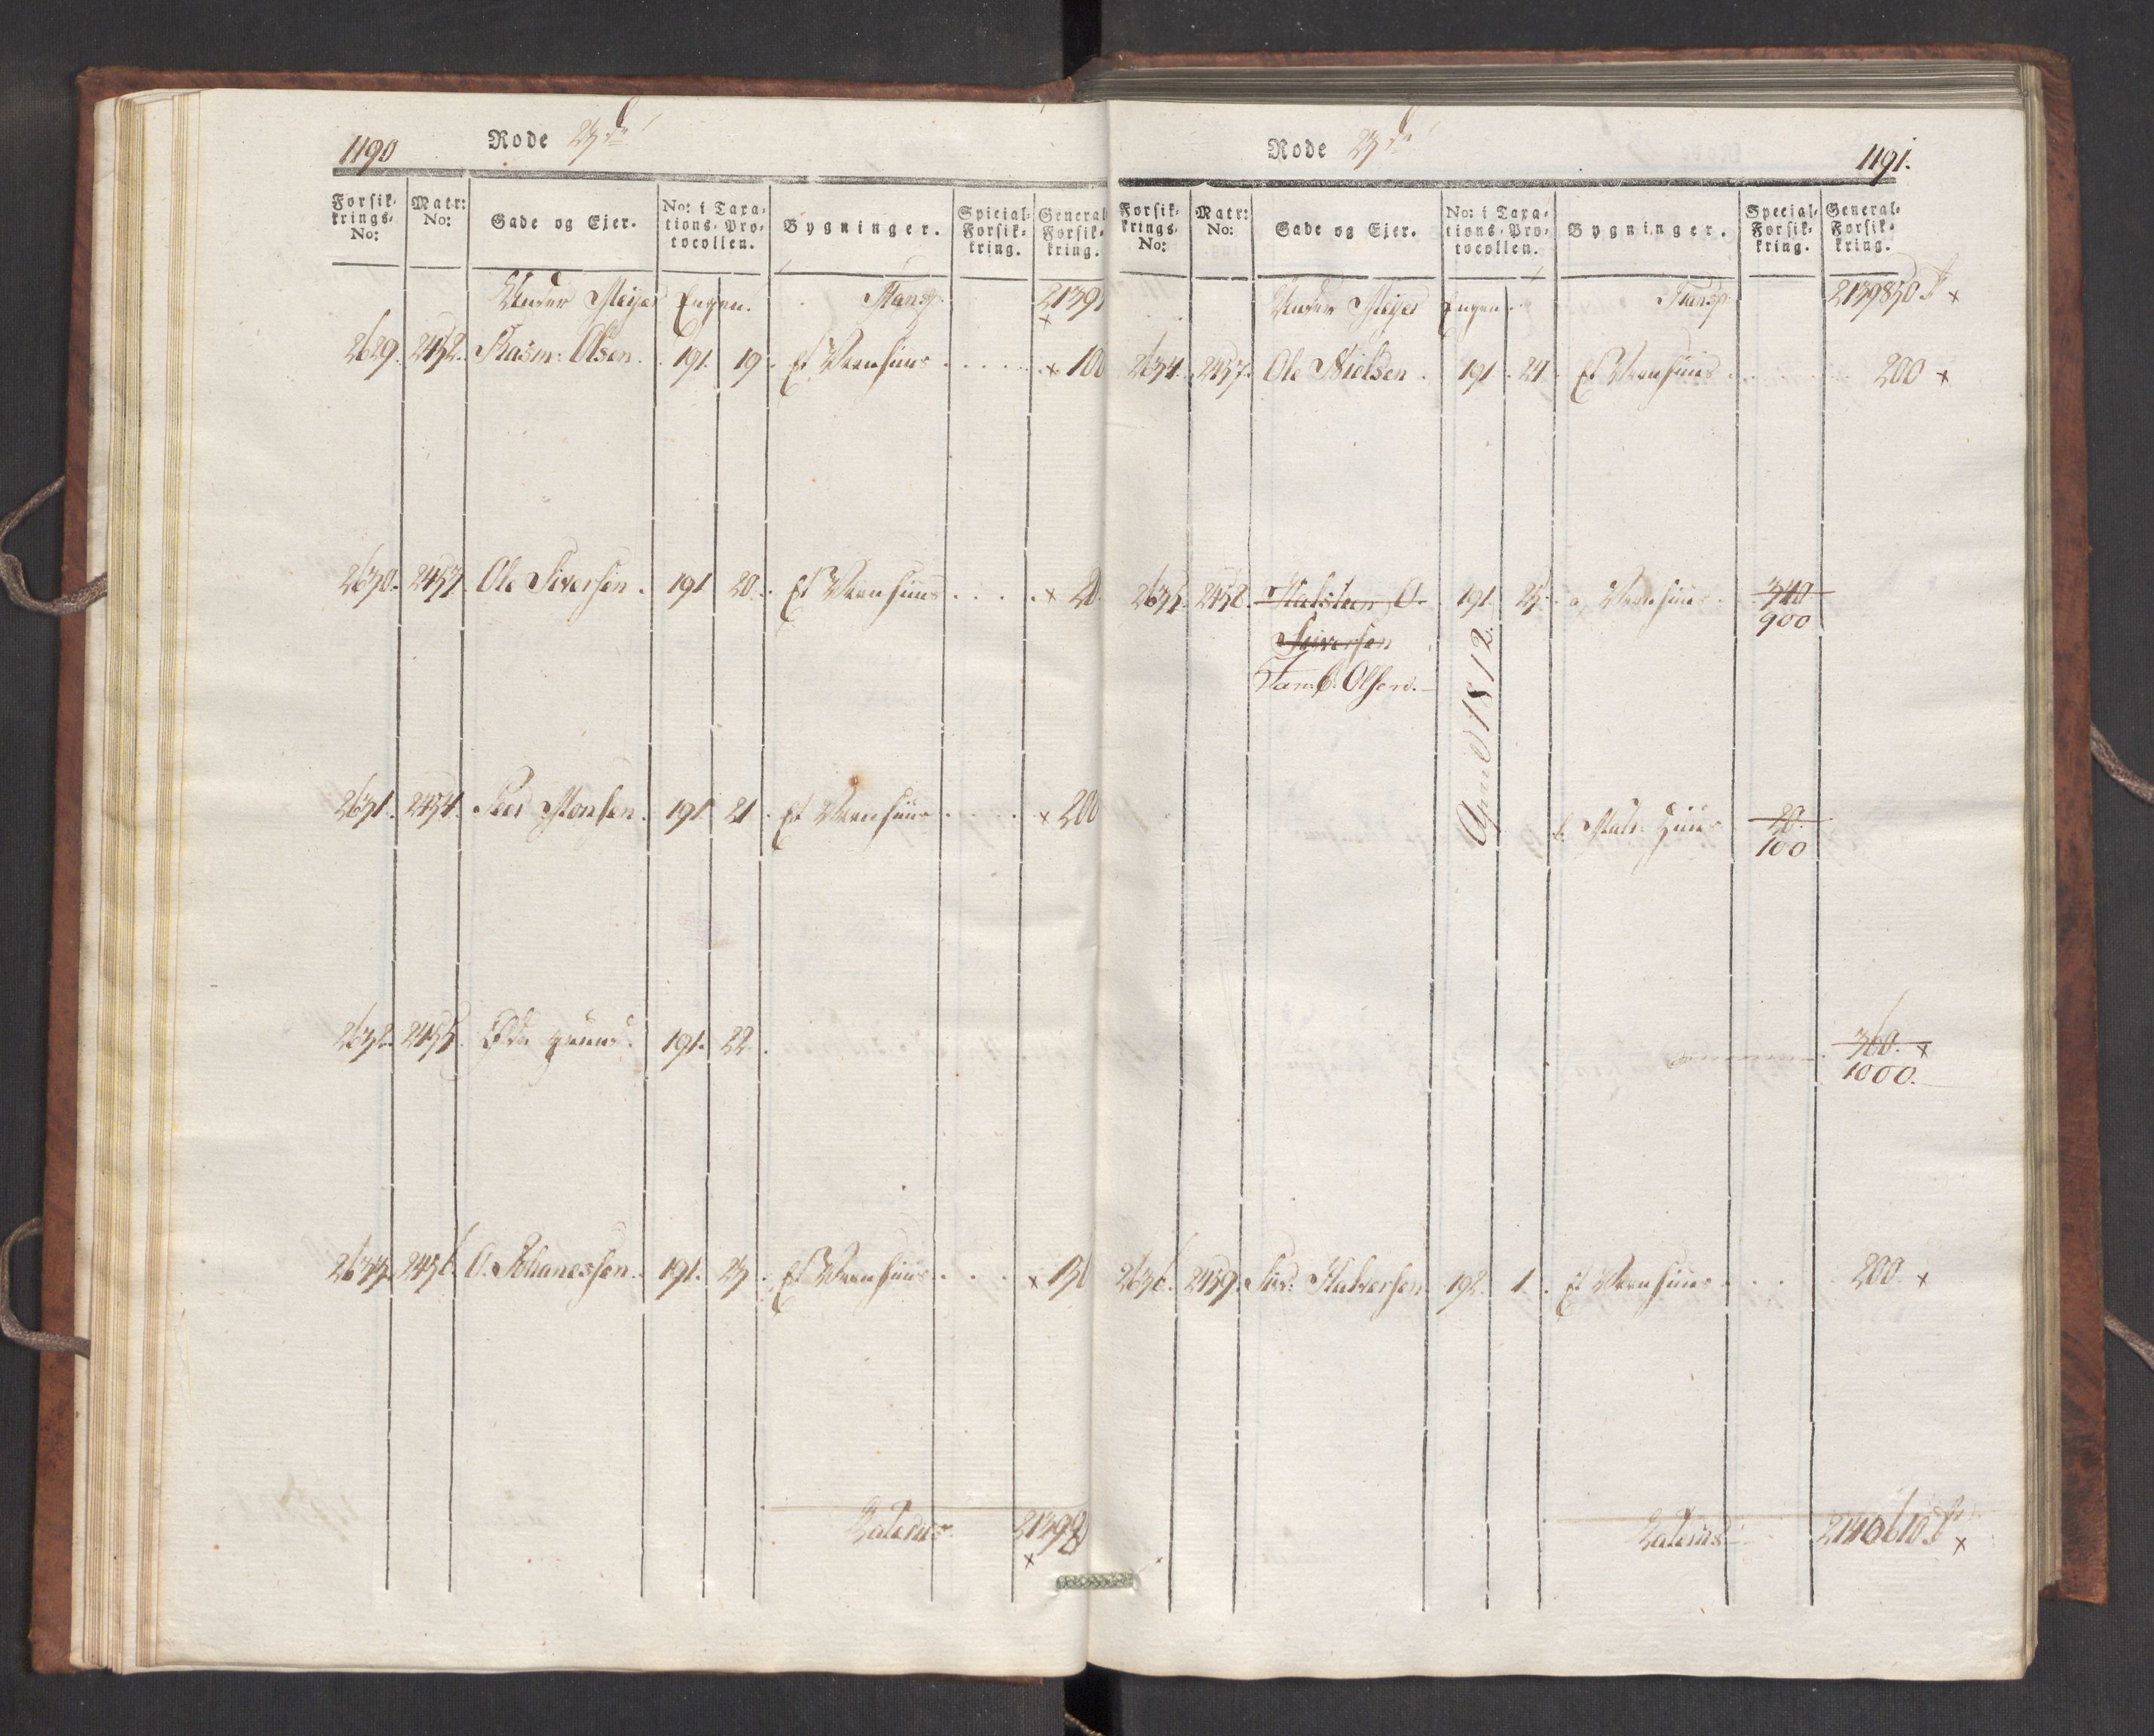 1190
Rode 23de
Forsik- krings- No:
Matr: No:
Gade og Ejer.
No: i Taxa- tions-Pro- tocollen.
Bygninger.
Special- Forsik- kring.
General Forsik- kring.
Under Meyer Engen. Transp. 2139
2629. 2452. Rasm: Olsen. 191. 19. Et Vaanhuus . . . . x 100
2630. 2453. Ole Siversen. 191 20. Et Vaanhuus . . . . x 20
2631. 2454. Peer Monsen. 191. 21. Et Vaanhuus . . . . x 200
2632. 2455. Øde grund. 191. 22.
2633. 2456. O. Johanessen. 191. 23. Et Vaanhuus . . . x 150
Lateris 21398
x
Rode 23de
1191.
Forsik- krings- No:
Matr: No:
Gade og Ejer.
No: i Taxa- tions-Pro- tocollen.
Bygninger.
Special- Forsik- kring.
General- Forsik- kring.
Under Meyer Engen. Transp. 2139850 x
2634. 2457. Ole Nielsen. 191. 24. Et Vaanhuus . . . 200 x
2635. 2458. Halsteen O. 191. 25. a, Vaanhuus. 340
900
Siversen
Jamb. Olsen.
April 1812.
b. Huus 20.
100
360. x
1000.
2636. 2459. Siv: Halversen. 192. 1. Et Vaanhuus . . . 200 x
Lateris 2140610 x